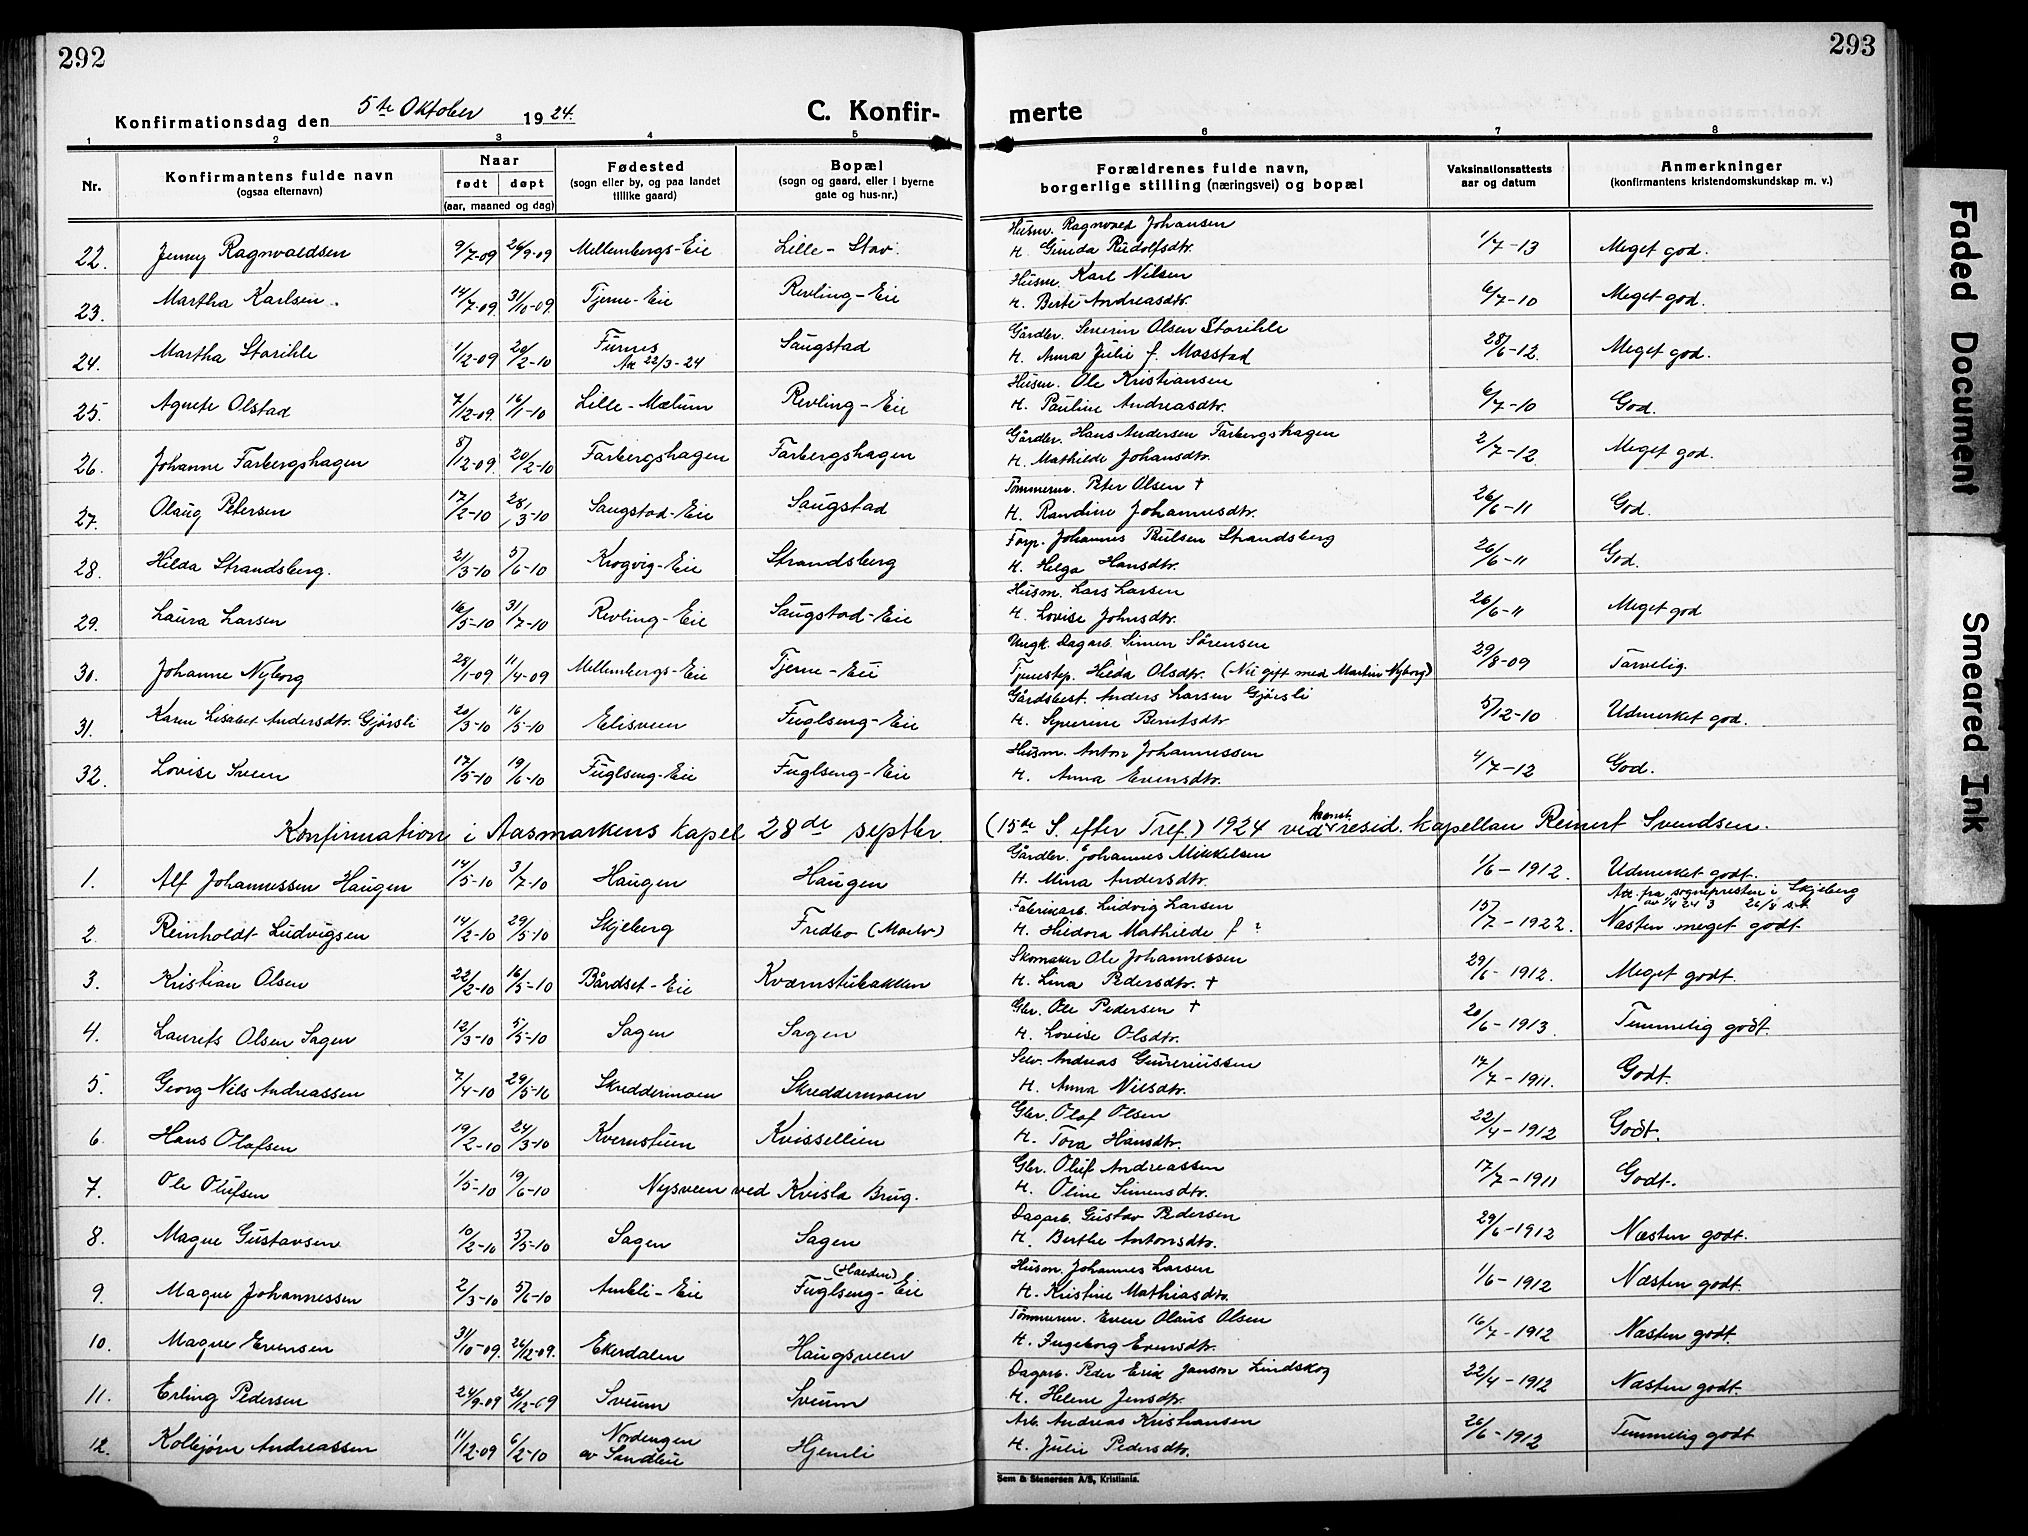 292
293
Konfirmationsdag den 5te Oktober 1924.
C. Konfir-
merte
1 2 3 4 5 6 7 8
Nr.
Konfirmantens fulde navn
(ogsaa efternavn)
Naar
født døpt
(aar, maaned og dag)
Fødested
(sogn eller by, og paa landet
tillike gaard)
Bopæl
(sogn og gaard, eller i byerne
gate og hus-nr.)
Forældrenes fulde navn,
borgerlige stilling (næringsvei) og bopæl
Vaksinationsattests
aar og datum
Anmerkninger
(konfirmantens kristendomskundskap m. v.)
22. Jenny Ragnvaldsen 9/7-09 26/9-09 Mellembergs-Eie Lille-Stav. Husm. Ragnvald Johansen
H. Gunda Rudolfsdtr. 1/7-13 Meget god.
23. Martha Karlsen. 14/7-09 31/10-09 Tjerne-Eie Revling-Eie Husm. Karl Nilsen
H. Berte Andreasdtr. 6/7-10 Meget god.
24. Martha Storihle 1/2-09 20/2-10 Furnes Saugstad Gårdbr. Severin Olsen Storihle
Att 22/3-24 H. Anna Julie f. Mosstad 28/6-12. Meget god.
25. Agnete Olstad 7/12-09 16/1-10 Lille-Mælum Revling-Eie Husm. Ole Kristiansen
H. Pauline Andreasdtr. 6/7-10 God.
26. Johanne Farbergshagen 8/12-09 20/2-10 Farbergshagen Farbergshagen Gårdbr. Hans Andersen Farbergshagen
H. Mathilde Johansdtr. 2/7-12 Meget god.
27. Olaug Petersen 17/2-10 28/3-10 Saugstad-Eie Saugstad Tømmerm. Peter Olsen †
H. Randine Johannesdtr. 26/6-11 God.
28. Hilda Strandsberg. 21/3-10 5/6-10 Krogvig-Eie Strandsberg Forp. Johannes Paulsen Strandsberg
H. Helga Hansdtr. 26/6-11 God.
29. Laura Larsen 16/5-10 31/7-10 Revling-Eie Saugstad-Eie Husm. Lars Larsen
H. Lovise Johnsdtr. 26/6-11 Meget god
30. Johanne Nyborg 28/1-09 11/4-09 Mellembergs-Eie Tjerne-Eie Ungk. Dagarb. Simen Sørensen
Tjenestep. Hilda Olsdtr. (Nu gift med Martin Nyborg) 29/8-09 Tarvelig.
31. Karen Lisabet Andersdtr. Gjørsli 20/3-10 16/5-10 Elisveen Fuglseng-Eie Gårdsbest. Anders Larsen Gjørsli
H. Syverine Berntsdtr. 5/12-10 Udmerket god.
32. Lovise Sveen 17/5-10 19/6-10 Fuglseng-Eie Fuglseng-Eie Husm. Anton Johannessen
H. Anna Evensdtr. 4/7-12 God.
Konfirmation i Aasmarkens kapel 28de septbr. (15de S. efter Tref.) 1924 ved konst. resid. kapellan Reinert Svendsen.
1. Alf Johannessen Haugen 14/5-10 3/7-10 Haugen Haugen Gårdbr. Johannes Mikkelsen
H. Mina Andersdtr. 1/6-1912. Udmerket godt.
2. Reinholdt Ludvigsen 14/2-10 29/5-10 Skjeberg Fredbo (Moelv) Fabrikarb. Ludvig Larsen
H. Hildora Mathilde f ? 15/7-1922. Att. fra sognepresten i Skjeberg
Næsten meget godt.
3. Kristian Olsen 22/2-10 16/5-10 Bårdset-Eie Kværnstubakken Skomaker Ole Johannessen
H. Lina Pedersdtr. † 29/6-1912. Meget godt.
4. Laurits Olsen Sagen 12/3-10 5/5-10 Sagen Sagen Gbr. Ole Pedersen †
H. Lovise Olsdtr. 20/6-1913. Temmelig godt.
5. Georg Nils Andreassen 7/4-10 29/5-10 Skreddermoen Skreddermoen Selv. Andreas Guneriussen
H. Anna Nilsdtr. 17/7-1911. Godt.
6. Hans Olafsen 19/2-10 24/3-10 Kvernstuen Kvissellien Gbr. Olaf Olsen
H. Tova Hansdtr. 22/4-1912 Godt.
7. Ole Olufsen 1/5-10 19/6-10 Nysveen ved Kvisla Brug. Gbr. Oluf Andreassen
H. Oline Simensdtr. 17/7-1911 Godt.
8. Magne Gustavsen 10/2-10 5/5-10 Sagen Sagen Dagarb. Gustav Pedersen
H. Berthe Antonsdtr. 29/6-1912 Næsten godt.
9. Magne Johannessen 2/3-10 5/6-10 Amlli-Eie (Harden)
Fuglseng-Eie Husm. Johannes Larsen
H. Kristine Mathiasdtr. 1/6-1912 Næsten godt.
10. Magne Evensen 31/10-09 26/12-09. Ekerdalen Haugsveen Tømmerm. Even Olaus Olsen
H. Ingeborg Evensdtr. 16/7-1912 Næsten godt.
11. Erling Pedersen 24/9-09 26/12-09 Sveum Sveum Dagarb. Peder Erik Janson Lindskog
H. Helene Jensdtr. 22/4-1912 Næsten godt.
12. Kolbjørn Andreassen 11/12-09 6/2-10 Nordengen
av Sandlie Hjemli Arb. Andreas Kristiansen
H. Julie Pedersdtr. 26/6-1912 Temmelig godt
Sem & Stenersen A/S, Kristiania.
Faded Document
Smeared Ink